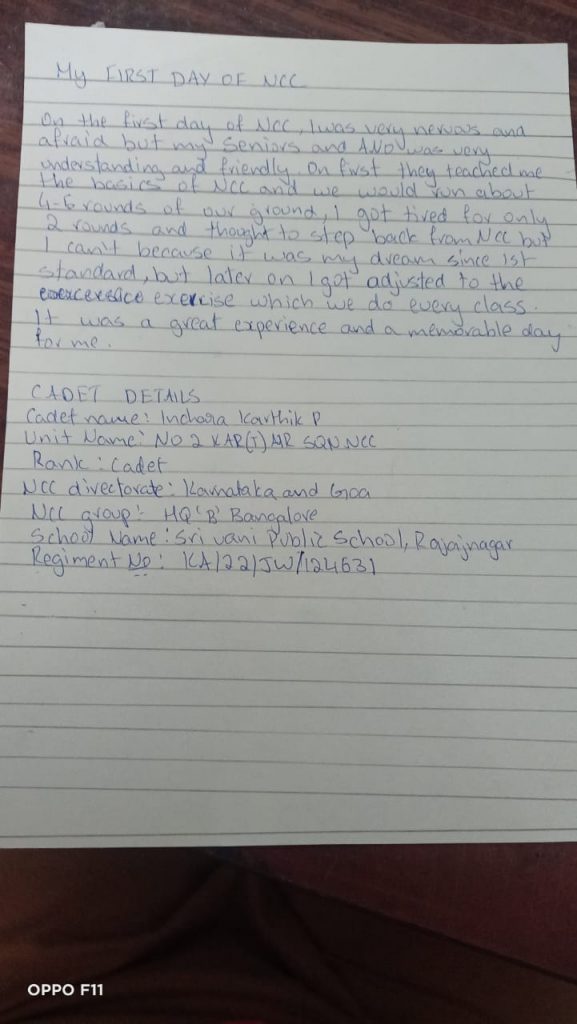 My FIRST DAY OF NCC
On the first day of NCC, I was very nervous and
afraid but my seniors and ANO was very
understanding and friendly. On first they teached me
the basics of NCC and we would run about
4-6 rounds of our ground, I got tired for only
2 rounds and thought to step back from NCC but
I can't because it was my dream since 1st
standard, but later on I got adjusted to the
exercise which we do every class.
It was a great experience and a memorable day
for me.
CADET DETAILS
Cadet name: Inchara Karthik P
Unit Name: NO 2 KAR(T) AIR SQN NCC
Rank: Cadet
NCC directorate: Karnataka and Goa
NCC group: HQ 'B' Bangalore
School Name: Sri vani Public School, Rajajnagar
Regiment No: KA/22/JW/124631
OPPO F11